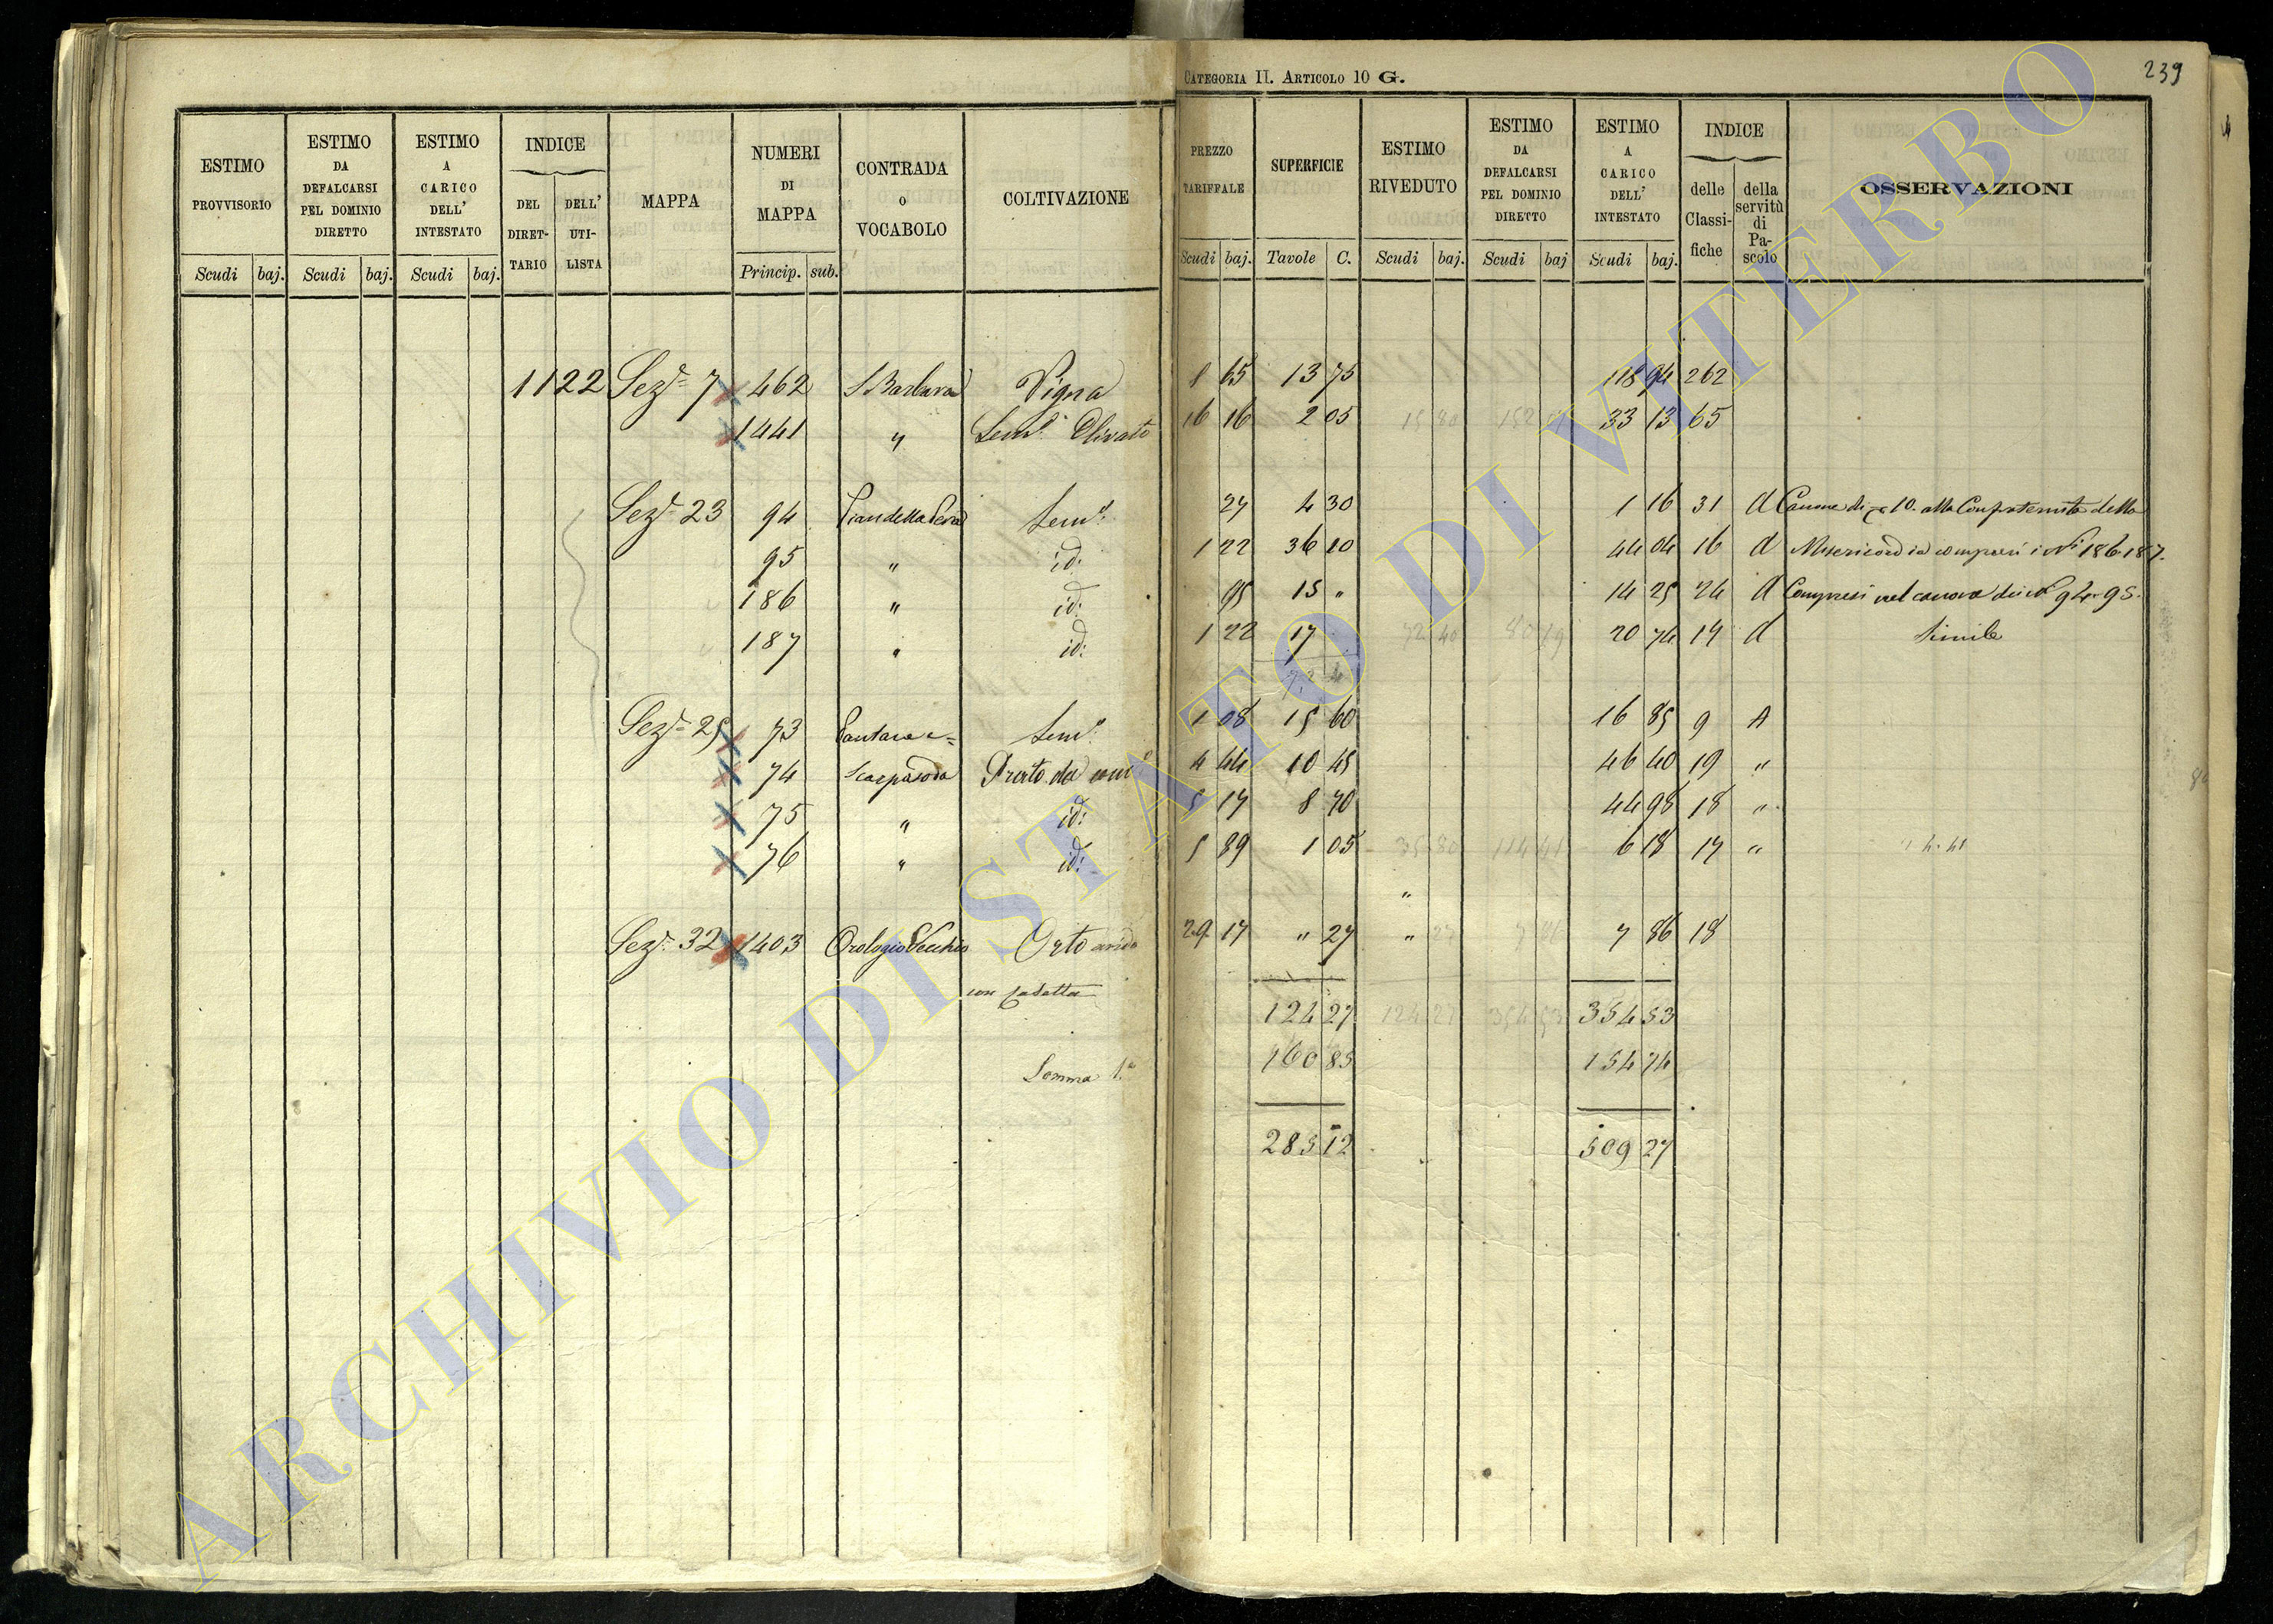 CATEGORIA II. ARTICOLO 10 G.
239
ESTIMO PROVVISORIO
Scudi baj.
ESTIMO DA DEFALCARSI PEL DOMINIO DIRETTO
Scudi baj.
ESTIMO A CARICO DELL' INTESTATO
Scudi baj.
INDICE
DEL DIRETTARIO
DELL' UTILISTA
MAPPA
NUMERI DI MAPPA
Princip. sub.
CONTRADA o VOCABOLO
COLTIVAZIONE
PREZZO TARIFFALE
Scudi baj.
SUPERFICIE
Tavole C.
ESTIMO RIVEDUTO
Scudi baj.
ESTIMO DA DEFALCARSI PEL DOMINIO DIRETTO
Scudi baj
ESTIMO A CARICO DELL' INTESTATO
Scudi baj.
INDICE
delle Classifiche
della servitù di Pascolo
OSSERVAZIONI
1122 Sezne 7 462 S Barbara Vigna 8 65 13 75 118 94 262
1441 " Semo Olivato 16 16 2 05 33 13 65
Sezne 23 94 Pian della Semo 27 4 30 1 16 31 d Canone di 10. alla Confraternita della
95 " id: 1 22 36 10 44 04 16 d Misericordia compresi i Ni 186.187.
186 " id: 95 15 " 14 25 24 d Compresi nel canone dei Ni 94-95.
187 " id: 1 22 17 20 74 14 d Simile
Sezne 25 73 Semo 1 08 15 60 16 85 9 A
74 Scarpasoda Prato da 4 44 10 45 46 40 19 "
75 " id: 5 17 8 70 44 98 18 "
76 " id: 5 89 1 05 6 18 17 "
Sezne 32 1403 Orologio Vecchio Orto 29 17 " 27 " 7 86 18
con casetta
124 27 354 53
Somma 1a 160 85 154 74
285 12 509 27
ARCHIVIO DI STATO DI VITERBO